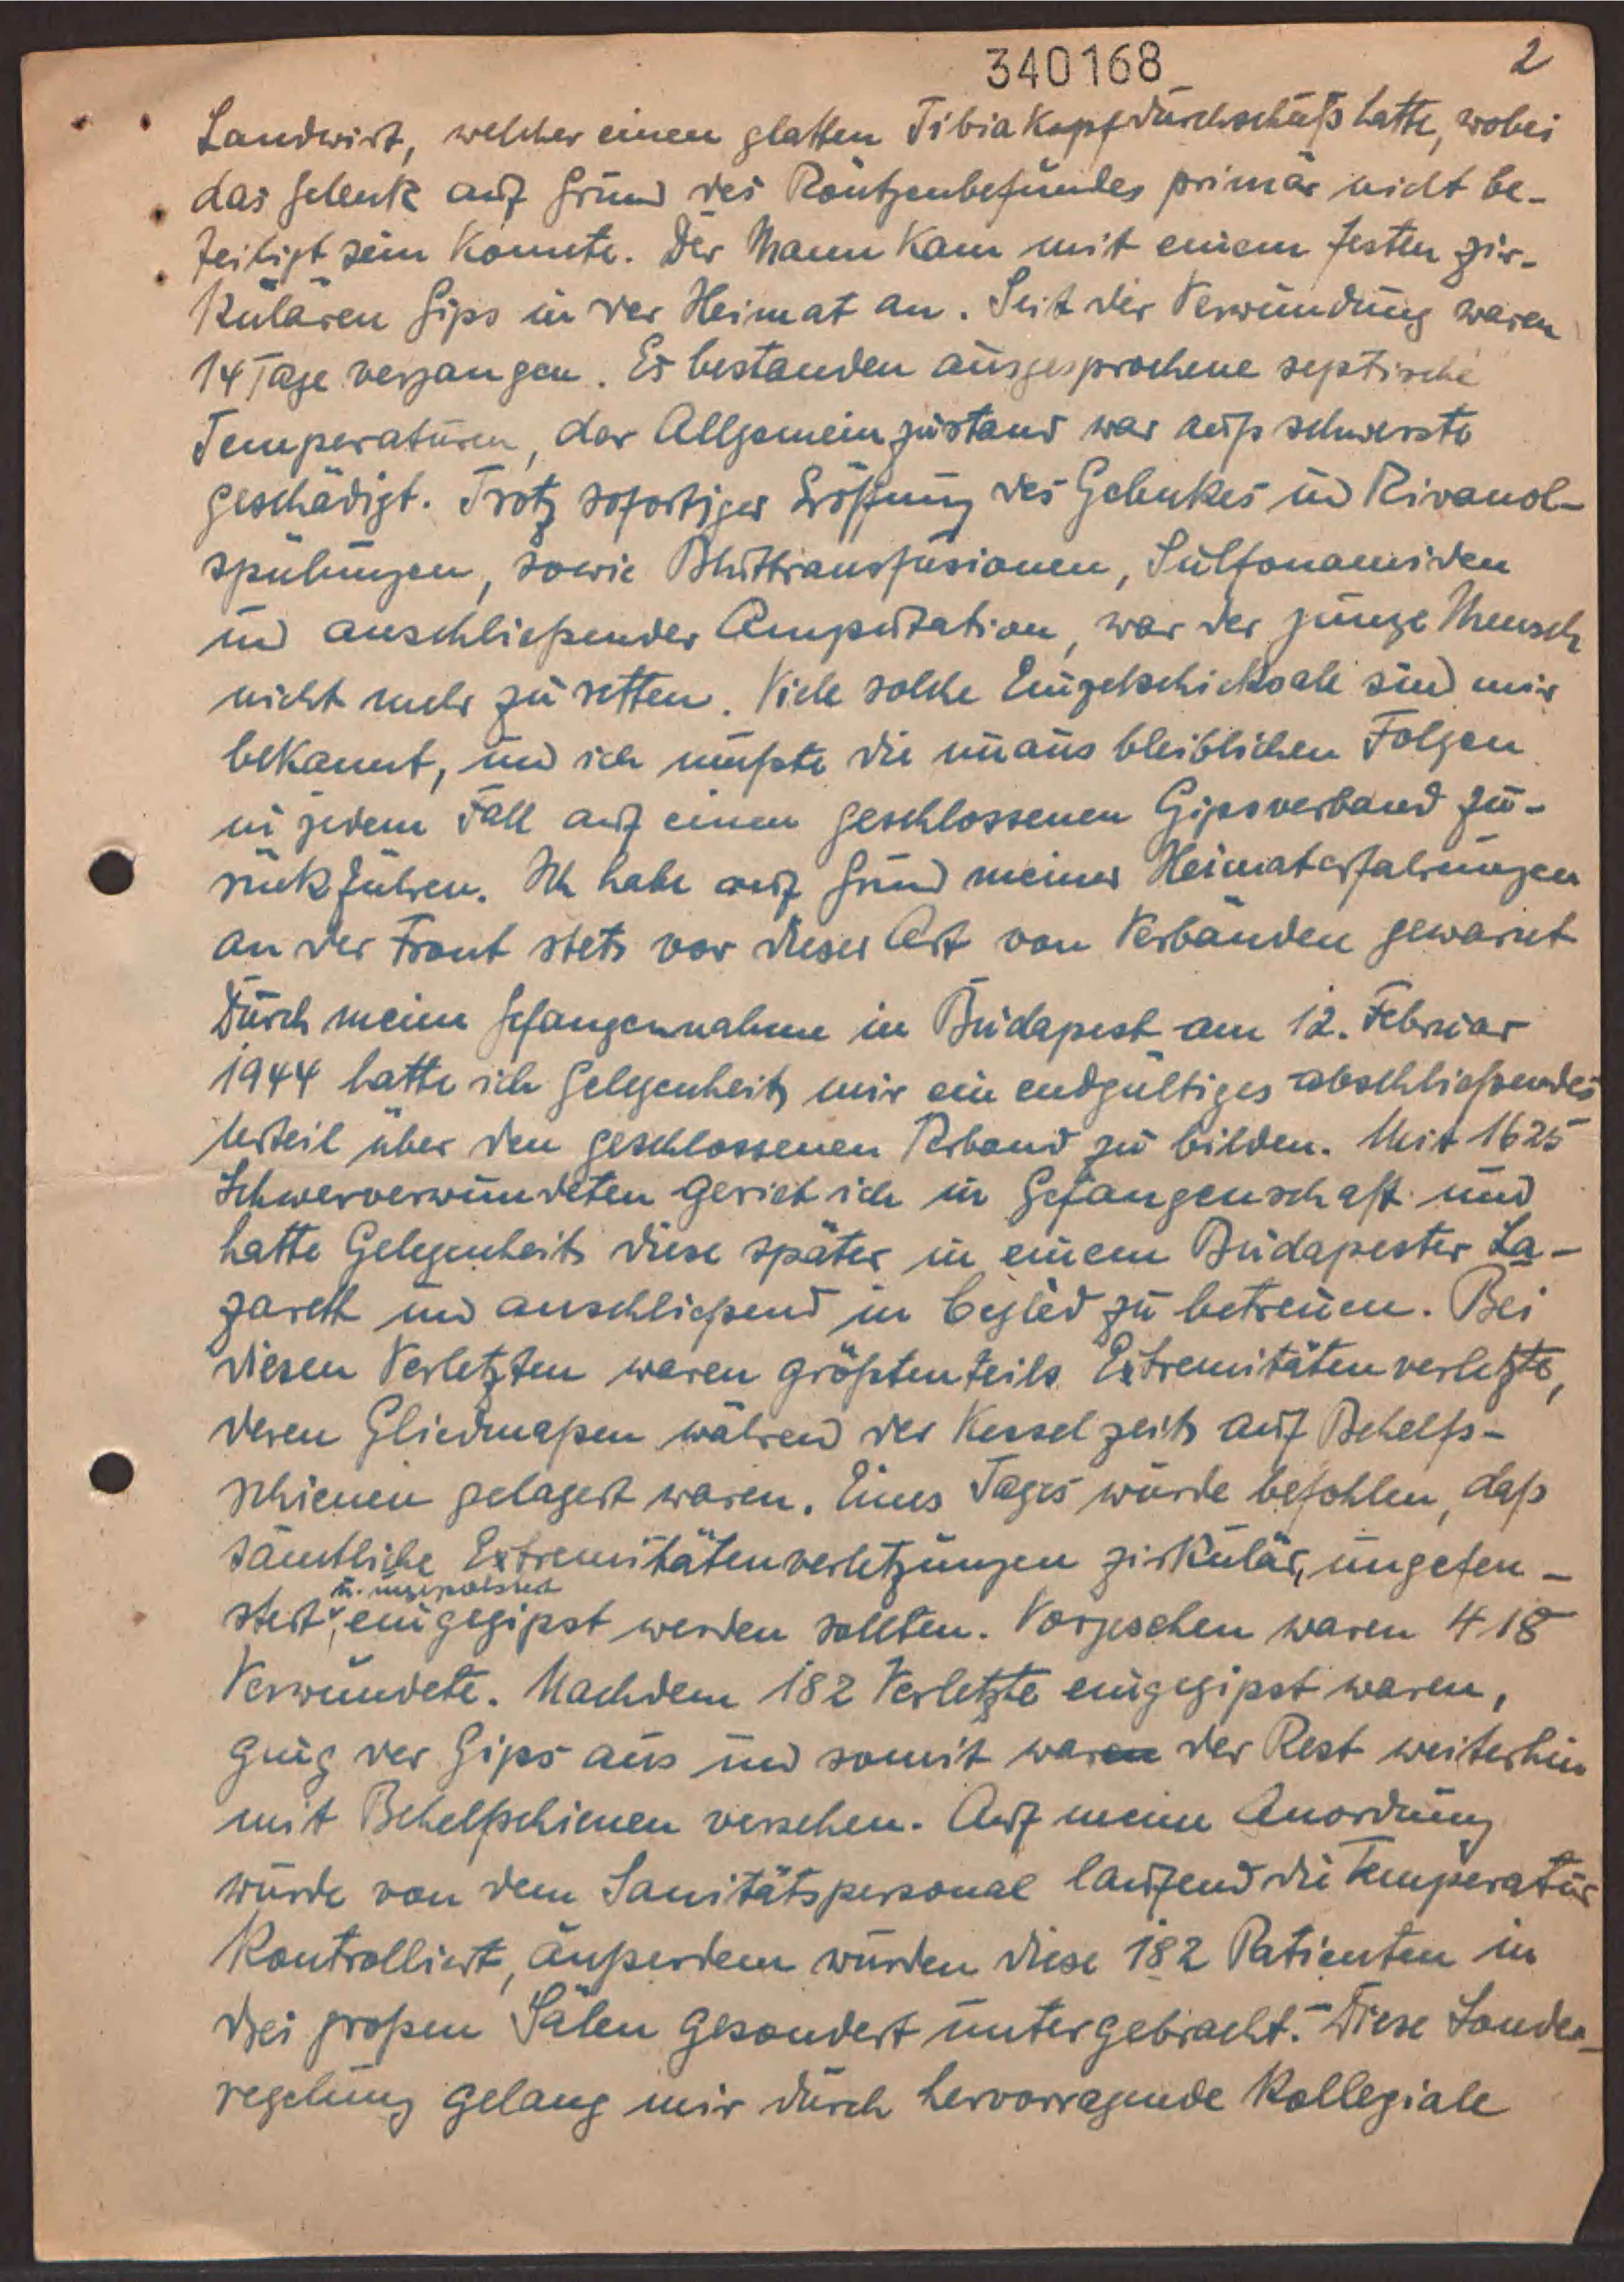 340168
2
Landwirt, welcher einen glatten Tibiakopfdurchschuß hatte, wobei
das Gelenk auf Grund des Röntgenbefundes primär nicht be-
teiligt sein konnte. Der Mann kam mit einem festen zir-
kulären Gips in der Heimat an. Seit der Verwundung waren
14 Tage vergangen. Es bestanden ausgesprochene septische
Temperaturen, der Allgemeinzustand war aufs schwerste
geschädigt. Trotz sofortiger Eröffnung des Gelenkes und Rivanol-
spülungen, sowie Bluttransfusionen, Sulfonamiden
und anschließender Amputation, war der junge Mensch
nicht mehr zu retten. Viele solche Einzelschicksale sind mir
bekannt, und ich mußte die unausbleiblichen Folgen
in jedem Fall auf einen geschlossenen Gipsverband zu-
rückführen. Ich habe auf Grund meiner Heimaterfahrungen
an der Front stets vor dieser Art von Verbänden gewarnt
Durch meine Gefangennahme in Budapest am 12. Februar
1944 hatte ich Gelegenheit, mir ein endgültiges abschließendes
Urteil über den geschlossenen Verband zu bilden. Mit 1625
Schwerverwundeten geriet ich in Gefangenschaft und
hatte Gelegenheit, diese später in einem Budapester La-
zarett und anschließend in Cegléd zu betreuen. Bei
diesen Verletzten waren größtenteils Extremitätenverletzte,
deren Gliedmaßen während der Kesselzeit auf Behelfs-
schienen gelagert waren. Eines Tages wurde befohlen, daß
sämtliche Extremitätenverletzungen zirkulär, ungefen-
u. ungepolstert
stert, eingegipst werden sollten. Vorgesehen waren 418
Verwundete. Nachdem 182 Verletzte eingegipst waren,
ging der Gips aus und somit waren der Rest weiterhin
mit Behelfschienen versehen. Auf meine Anordnung
wurde von dem Sanitätspersonal laufend die Temperatur
kontrolliert, außerdem wurden diese 182 Patienten in
drei großen Sälen gesondert untergebracht. Diese Sonder-
regelung gelang mir durch hervorragende kollegiale